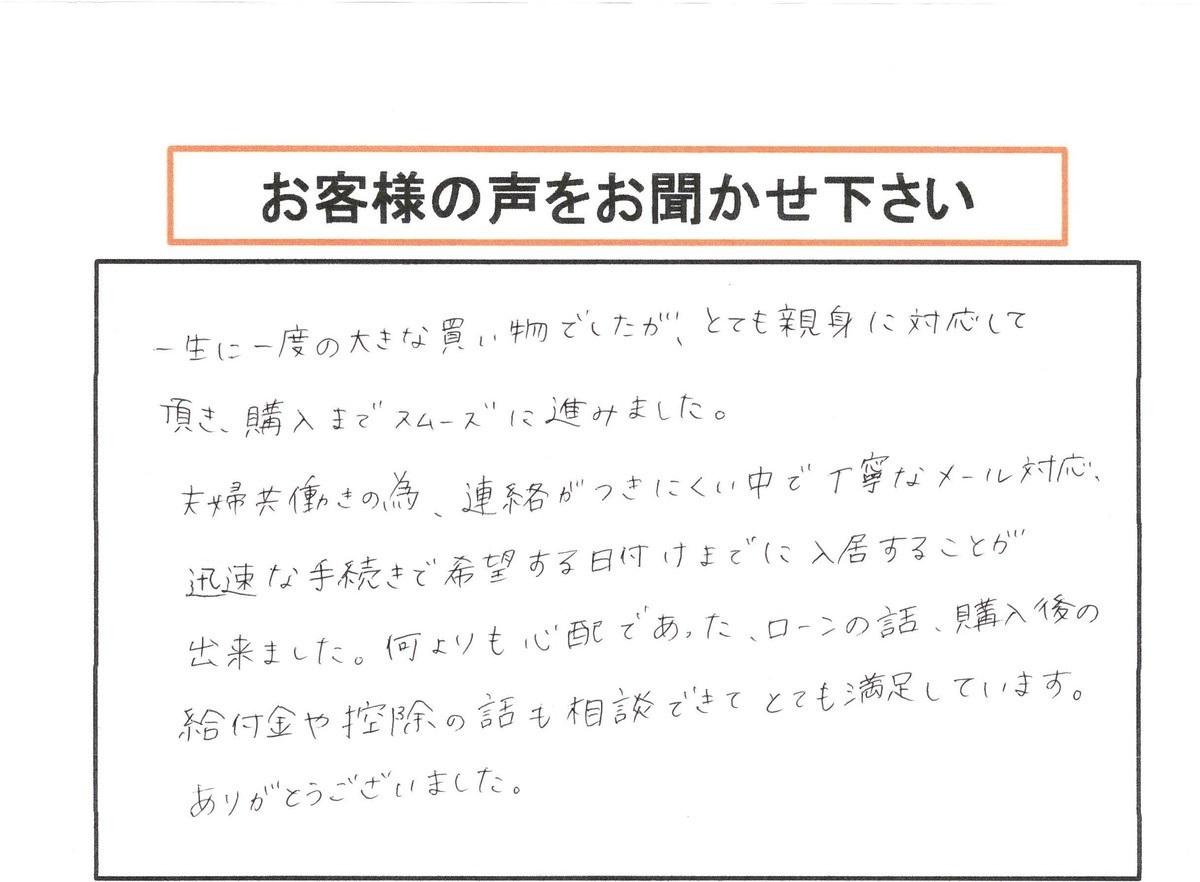 お客様の声をお聞かせ下さい
一生に一度の大きな買い物でしたが、とても親身に対応して
頂き、購入までスムーズに進みました。
夫婦共働きの為、連絡がつきにくい中で丁寧なメール対応、
迅速な手続きで希望する日付けまでに入居することが
出来ました。何よりも心配であった、ローンの話、購入後の
給付金や控除の話も相談できてとても満足しています。
ありがとうございました。